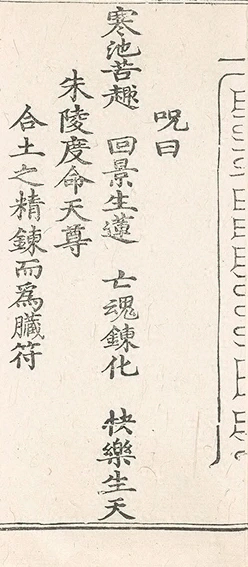 呪曰
寒池苦趣　回景生蓮　亡魂鍊化　快樂生天
朱陵度命天尊
合土之精鍊而為臟符